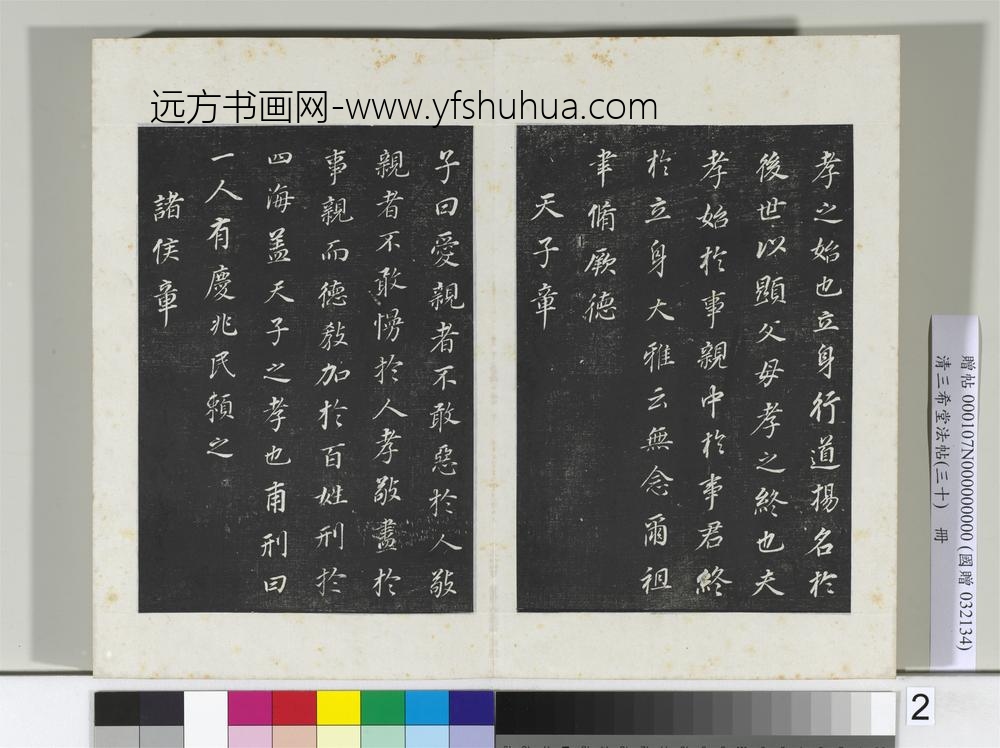 远方书画网-www.yfshuhua.com
孝之始也立身行道揚名於
後世以顯父母孝之終也夫
孝始於事親中於事君終
於立身大雅云無念爾祖
聿脩厥德
天子章
子曰愛親者不敢惡於人敬
親者不敢慢於人孝敬盡於
事親而德教加於百姓刑於
四海蓋天子之孝也甫刑曰
一人有慶兆民賴之
諸侯章
贈帖 000107N000000000 (國贈 032134)
清三希堂法帖(三十) 冊
2